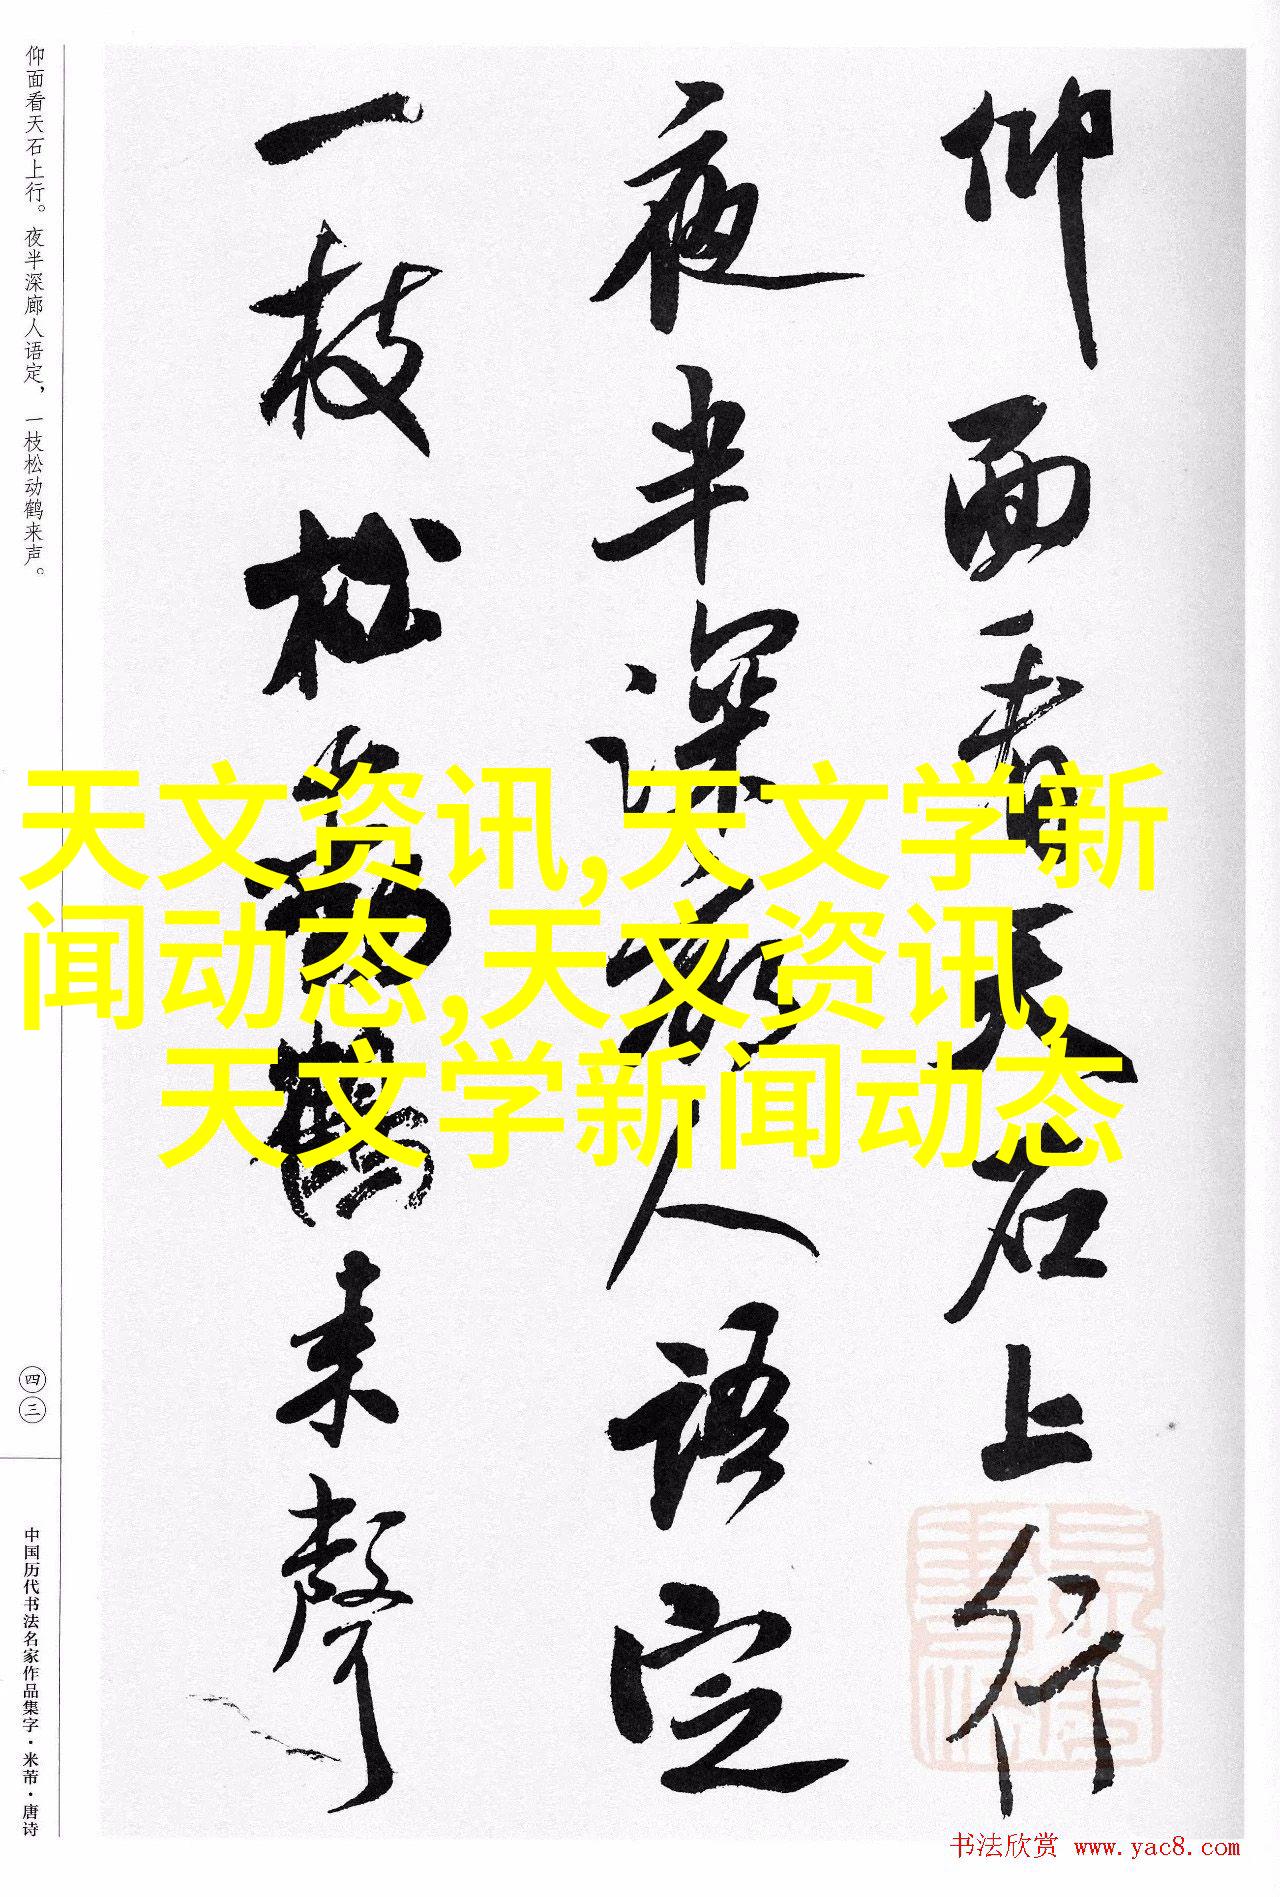 仰面看天石上行
夜半深廊人语定
一枝松动鹤来声
仰面看天石上行。夜半深廊人语定，一枝松动鹤来声。
四三
中国历代书法名家作品集字·米芾·唐诗
天文资讯,天文学新
闻动态,天文资讯,
天文学新闻动态
书法欣赏 www.yac8.com